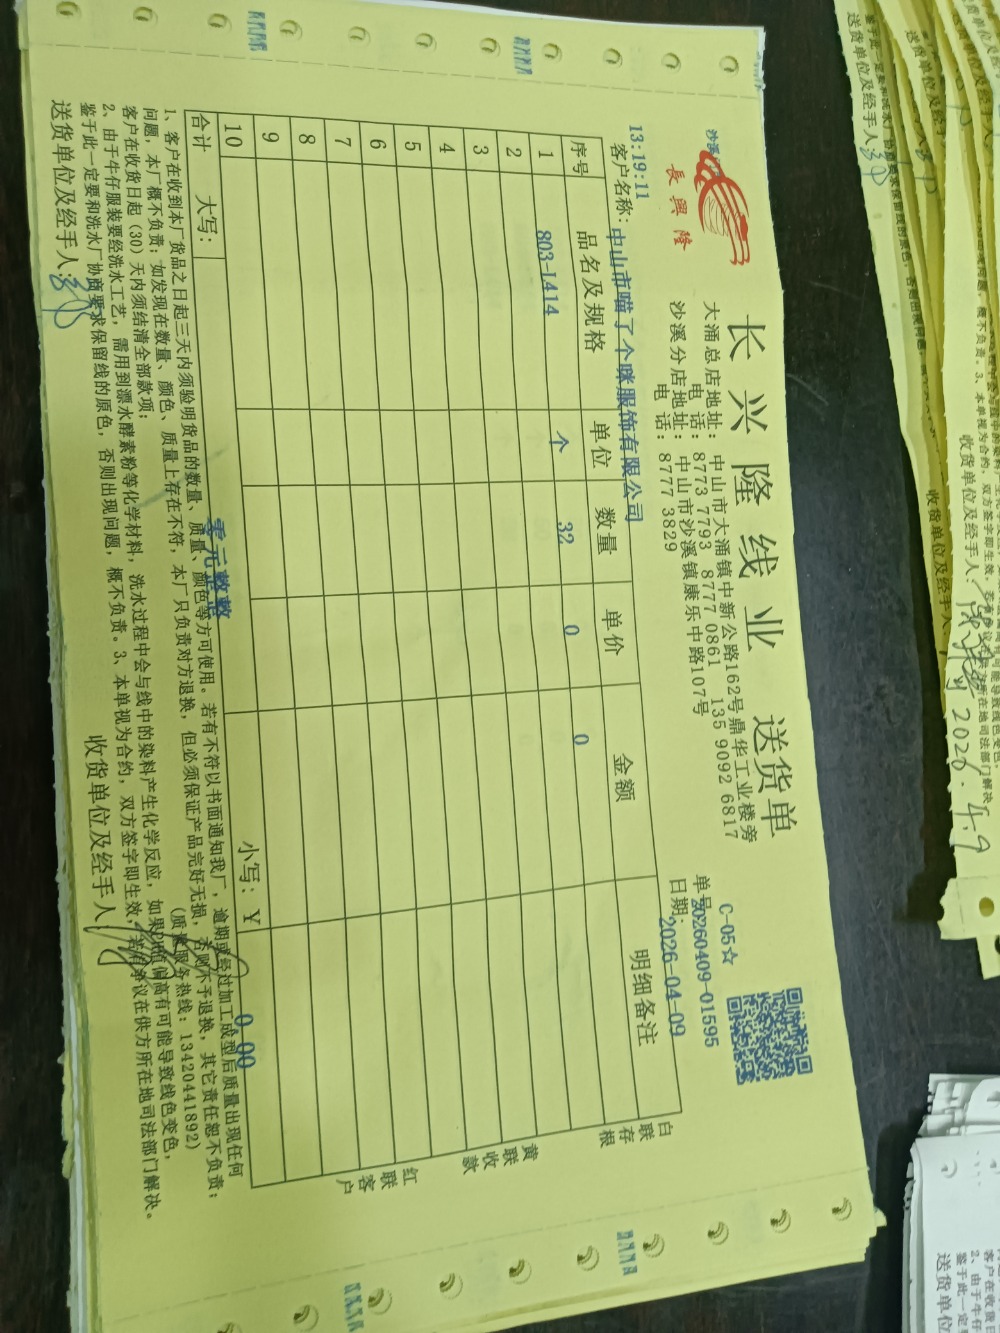 長興隆
长兴隆线业 送货单
大涌总店地址： 中山市大涌镇中新公路162号鼎华工业楼旁
电 话： 8773 7793 8777 0861 135 9092 6817
沙溪分店地址： 中山市沙溪镇康乐中路107号
电 话： 8777 3829
C-05☆
单号 20260409-01595
日期： 2026-04-09
13:19:11
客户名称： 中山市喵了个咪服饰有限公司
序号 品名及规格 单位 数量 单价 金额 明细备注
1 803-L414 个 32 0 0
2
3
4
5
6
7
8
9
10
合计 大写： 零元整 小写：￥ 0.00
白联存根
黄联收款
红联客户
1、客户在收到本厂货品之日起三天内须验明货品的数量、质量、颜色等方可使用。若有不符以书面通知我厂，逾期或经过加工成型后质量出现任何
问题，本厂概不负责；如发现在数量、颜色、质量上存在不符，本厂只负责对方退换，但必须保证产品完好无损，否则不予退换，其它责任恕不负责；
客户在收货日起（30）天内须结清全部款项； （质量服务热线：13420441892）
2、由于牛仔服装要经洗水工艺，需用到漂水酵素粉等化学材料，洗水过程中会与线中的染料产生化学反应，如果PH值偏高有可能导致线色变色，
鉴于此一定要和洗水厂协商要求保留线的原色，否则出现问题，概不负责。3、本单视为合约，双方签字即生效，若有争议在供方所在地司法部门解决。
送货单位及经手人： 收货单位及经手人
收货单位及经手人：
2026.4.9
收货单位及经手人
送货单位及经手人：
送货单位及经
送货单位